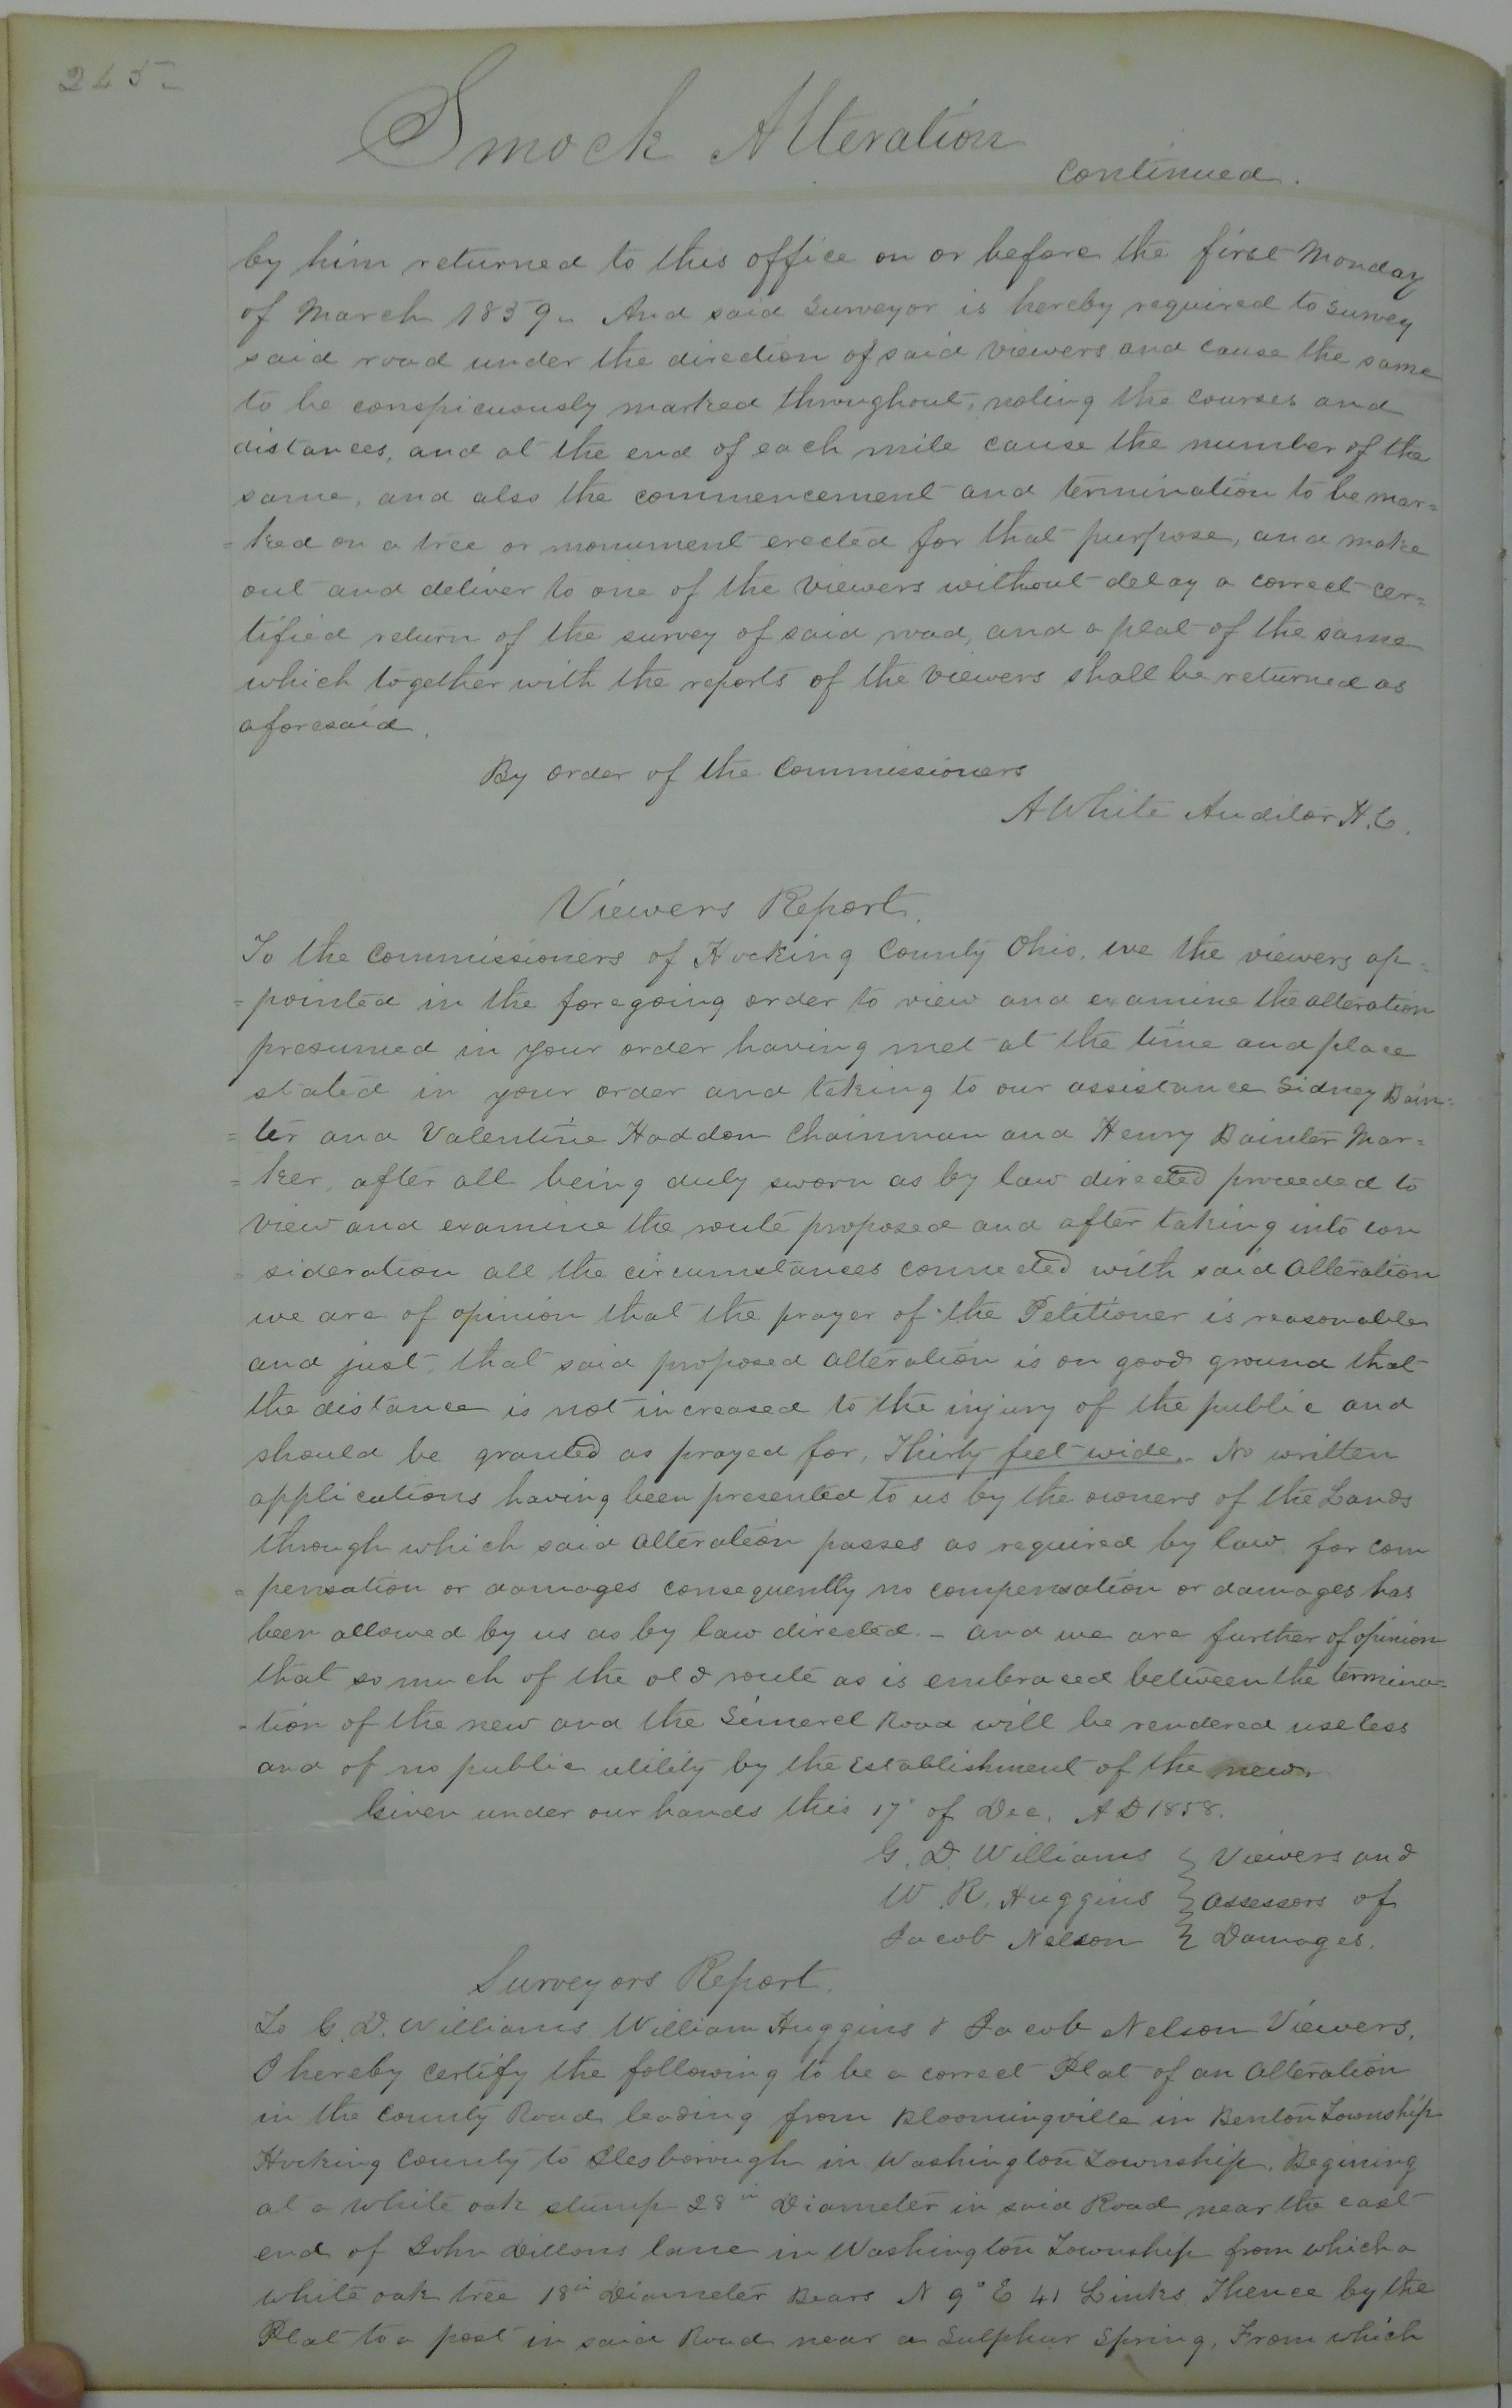 245
Smock Alteration
continued.
by him returned to this office on or before the first Monday
of March 1859. And said Surveyor is hereby required to survey
said road under the direction of said viewers and cause the same
to be conspicuously marked throughout, noting the courses and
distances, and at the end of each mile cause the number of the
same, and also the commencement and termination to be mar=
=ked on a tree or monument erected for that purpose, and make
out and deliver to one of the viewers without delay a correct cer=
tified return of the survey of said road, and a plat of the same
which together with the reports of the viewers shall be returned as
aforesaid.
By order of the Commissioners
A White Auditor H.C.
Viewers Report.
To the Commissioners of Hocking County Ohio. we the viewers ap=
=pointed in the foregoing order to view and examine the alteration
presumed in your order having met at the time and place
stated in your order and taking to our assistance Sidney Bain=
=ter and Valentine Haddon Chainman and Henry Bainter Mar=
=ker, after all being duly sworn as by law directed proceeded to
view and examine the route proposed and after taking into con
=sideration all the circumstances connected with said alteration
we are of opinion that the prayer of the Petitioner is reasonable
and just, that said proposed alteration is on good ground that
the distance is not increased to the injury of the public and
should be granted as prayed for, Thirty feet wide. No written
applications having been presented to us by the owners of the Lands
through which said alteration passes as required by law for com
=pensation or damages consequently no compensation or damages has
been allowed by us as by law directed. - and we are further of opinion
that so much of the old route as is embraced between the termina=
=tion of the new and the Simerel Road will be rendered useless
and of no public utility by the establishment of the new.
Given under our hands this 17" of Dec. A D 1858.
G. D. Williams } Viewers and
W. R. Huggins } assessors of
Jacob Nelson } Damages.
Surveyors Report.
To G. D. Williams William Huggins & Jacob Nelson Viewers.
I hereby certify the following to be a correct Plat of an alteration
in the County Road leading from Bloomingville in Benton Township
Hocking County to Ilesborough in Washington Township. Begining
at a white oak stump 28 in Diameter in said Road near the east
end of John Dillons lane in Washington Township from which a
white oak tree 18 in Diameter Bears N 9° E 41 Links. Thence by the
Plat to a post in said Road near a Sulphur Spring. From which